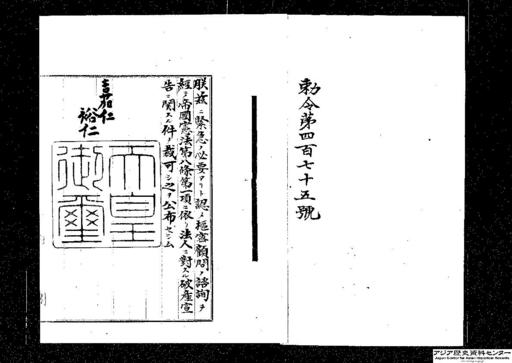 勅令第四百七十五號
朕玆ニ緊急ノ必要アリト認メ樞密顧問ノ諮詢ヲ
經テ帝國憲法第八條第一項ニ依リ法人ニ對スル破産宣
告ニ關スル件ヲ裁可シ之ヲ公布セシム
嘉仁
裕仁
天皇
御璽
アジア歴史資料センター
Japan Center for Asian Historical Records